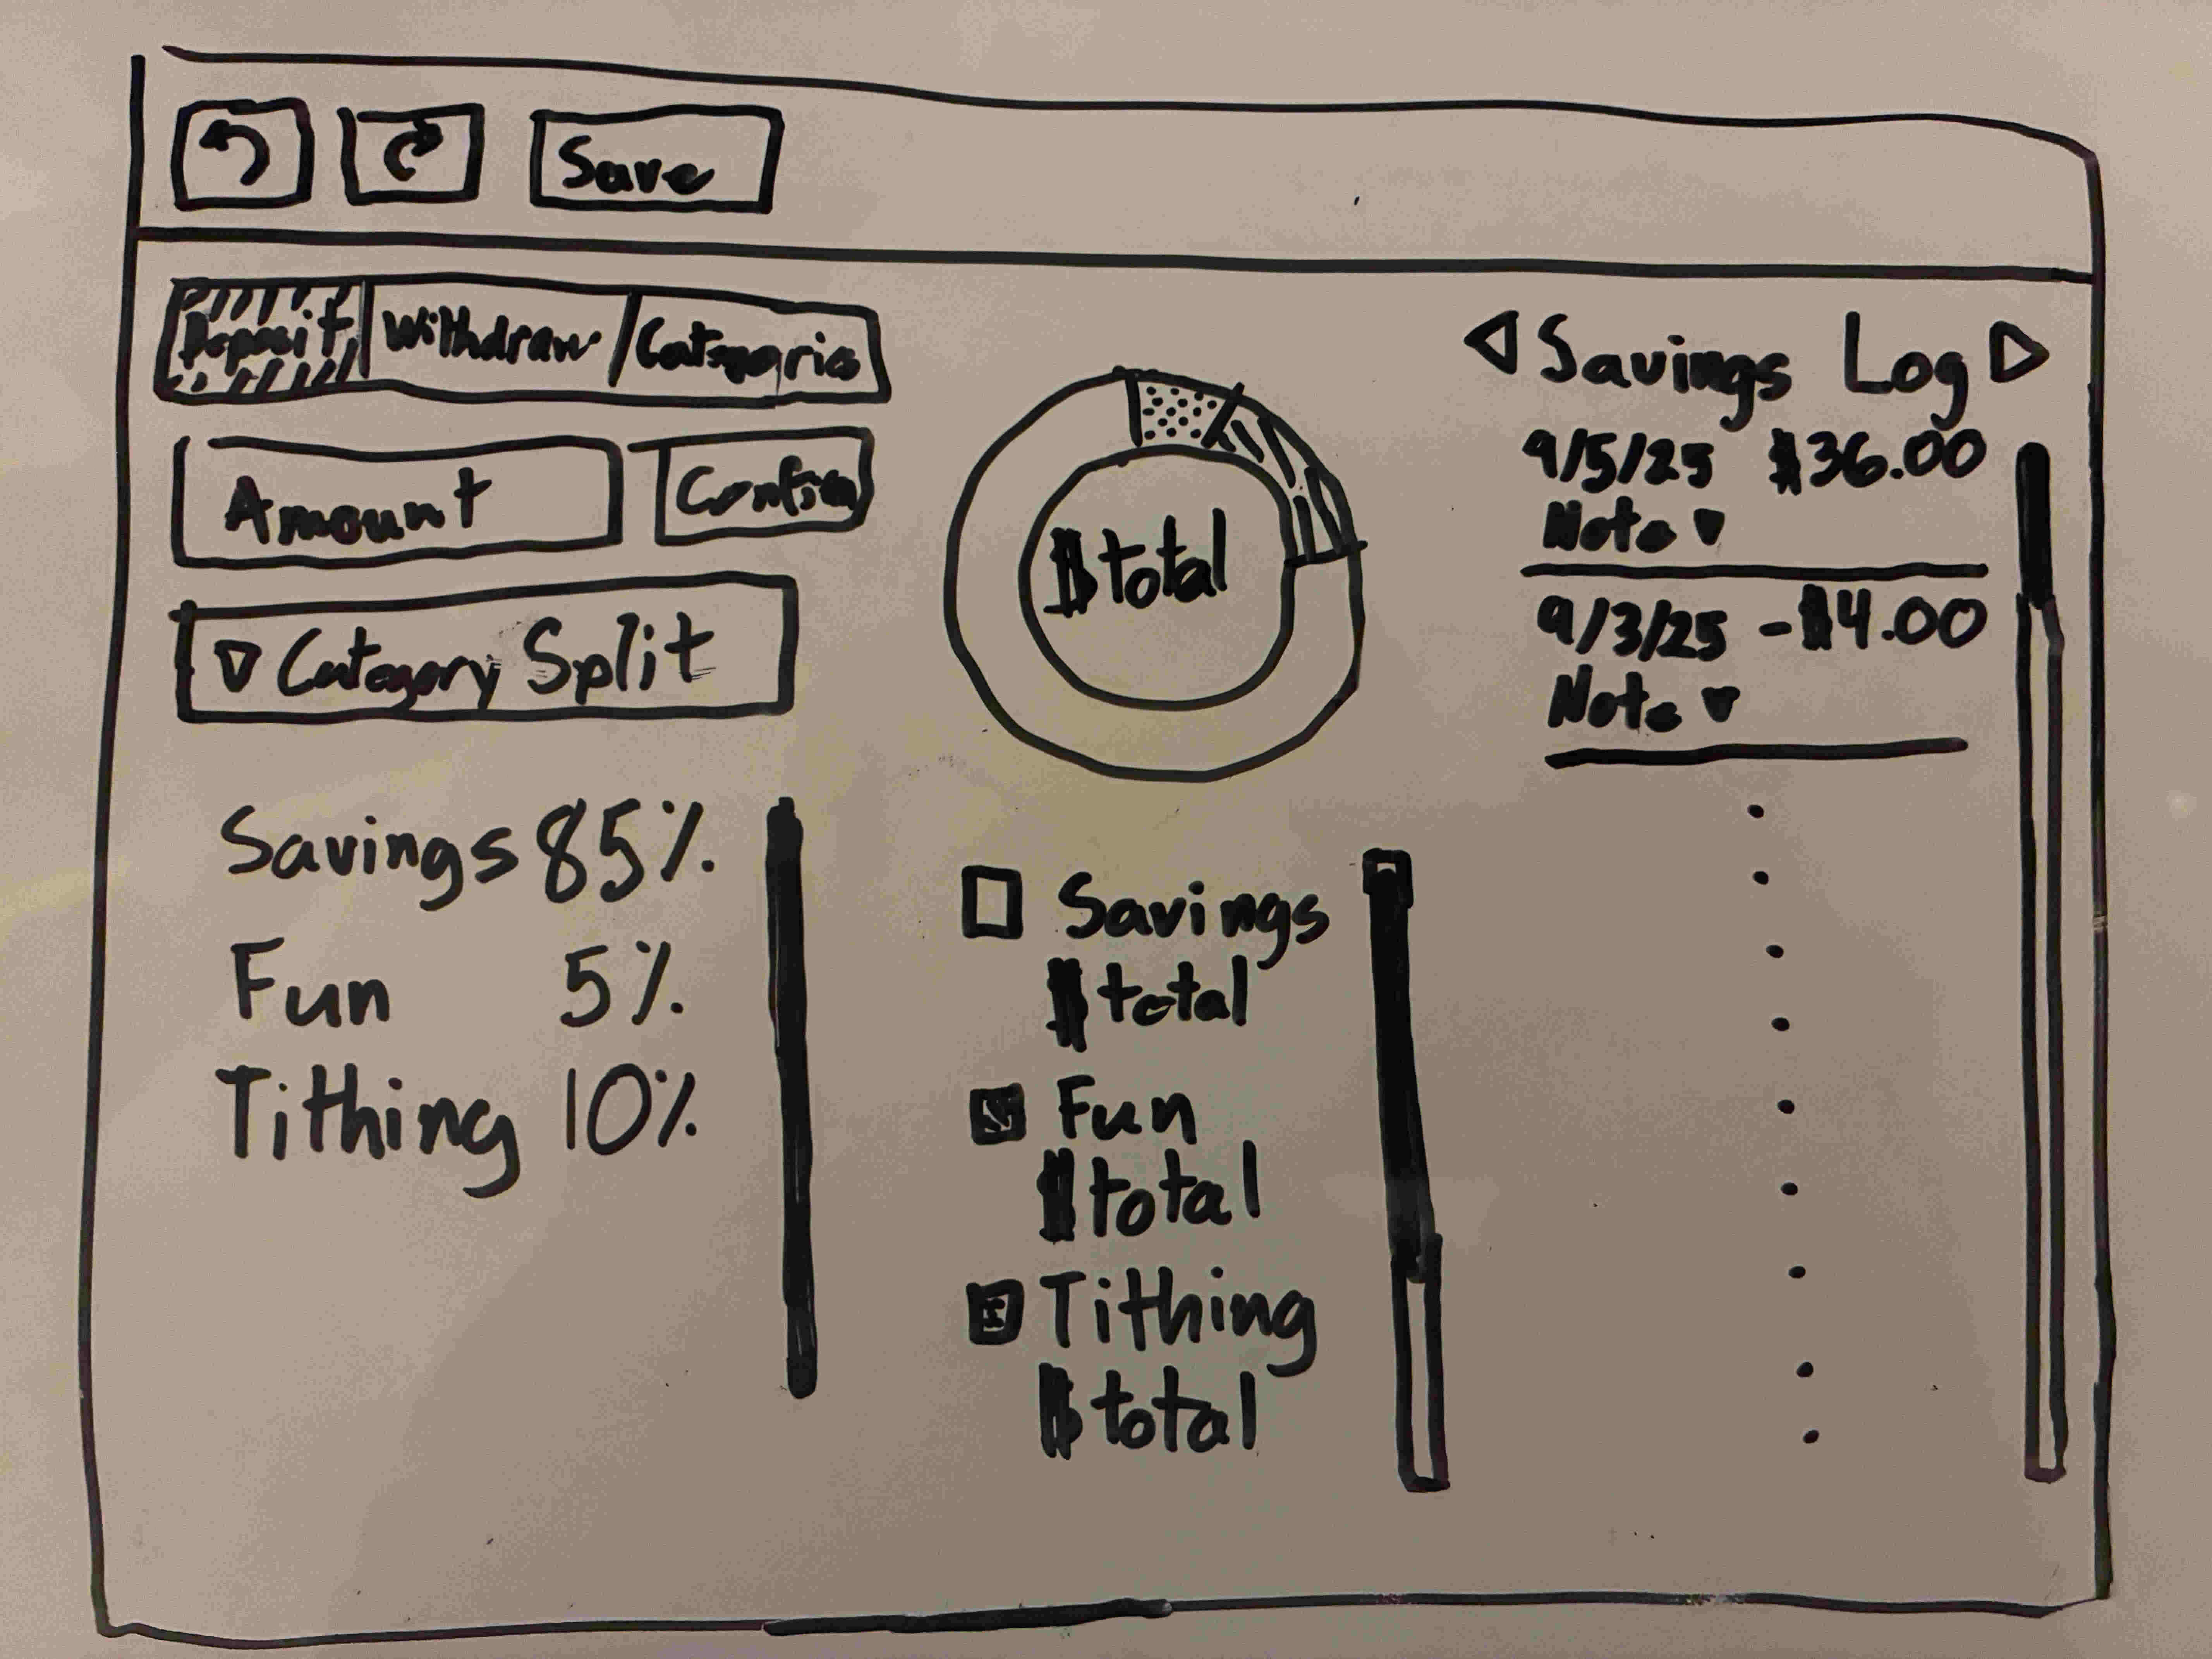 Save
Deposit Withdraw Categories
Amount Confirm
▽ Category Split
Savings 85%
Fun 5%
Tithing 10%
$total
Savings
$total
Fun
$total
Tithing
$total
◁ Savings Log ▷
9/5/25 $36.00
Note ▼
9/3/25 -$4.00
Note ▼